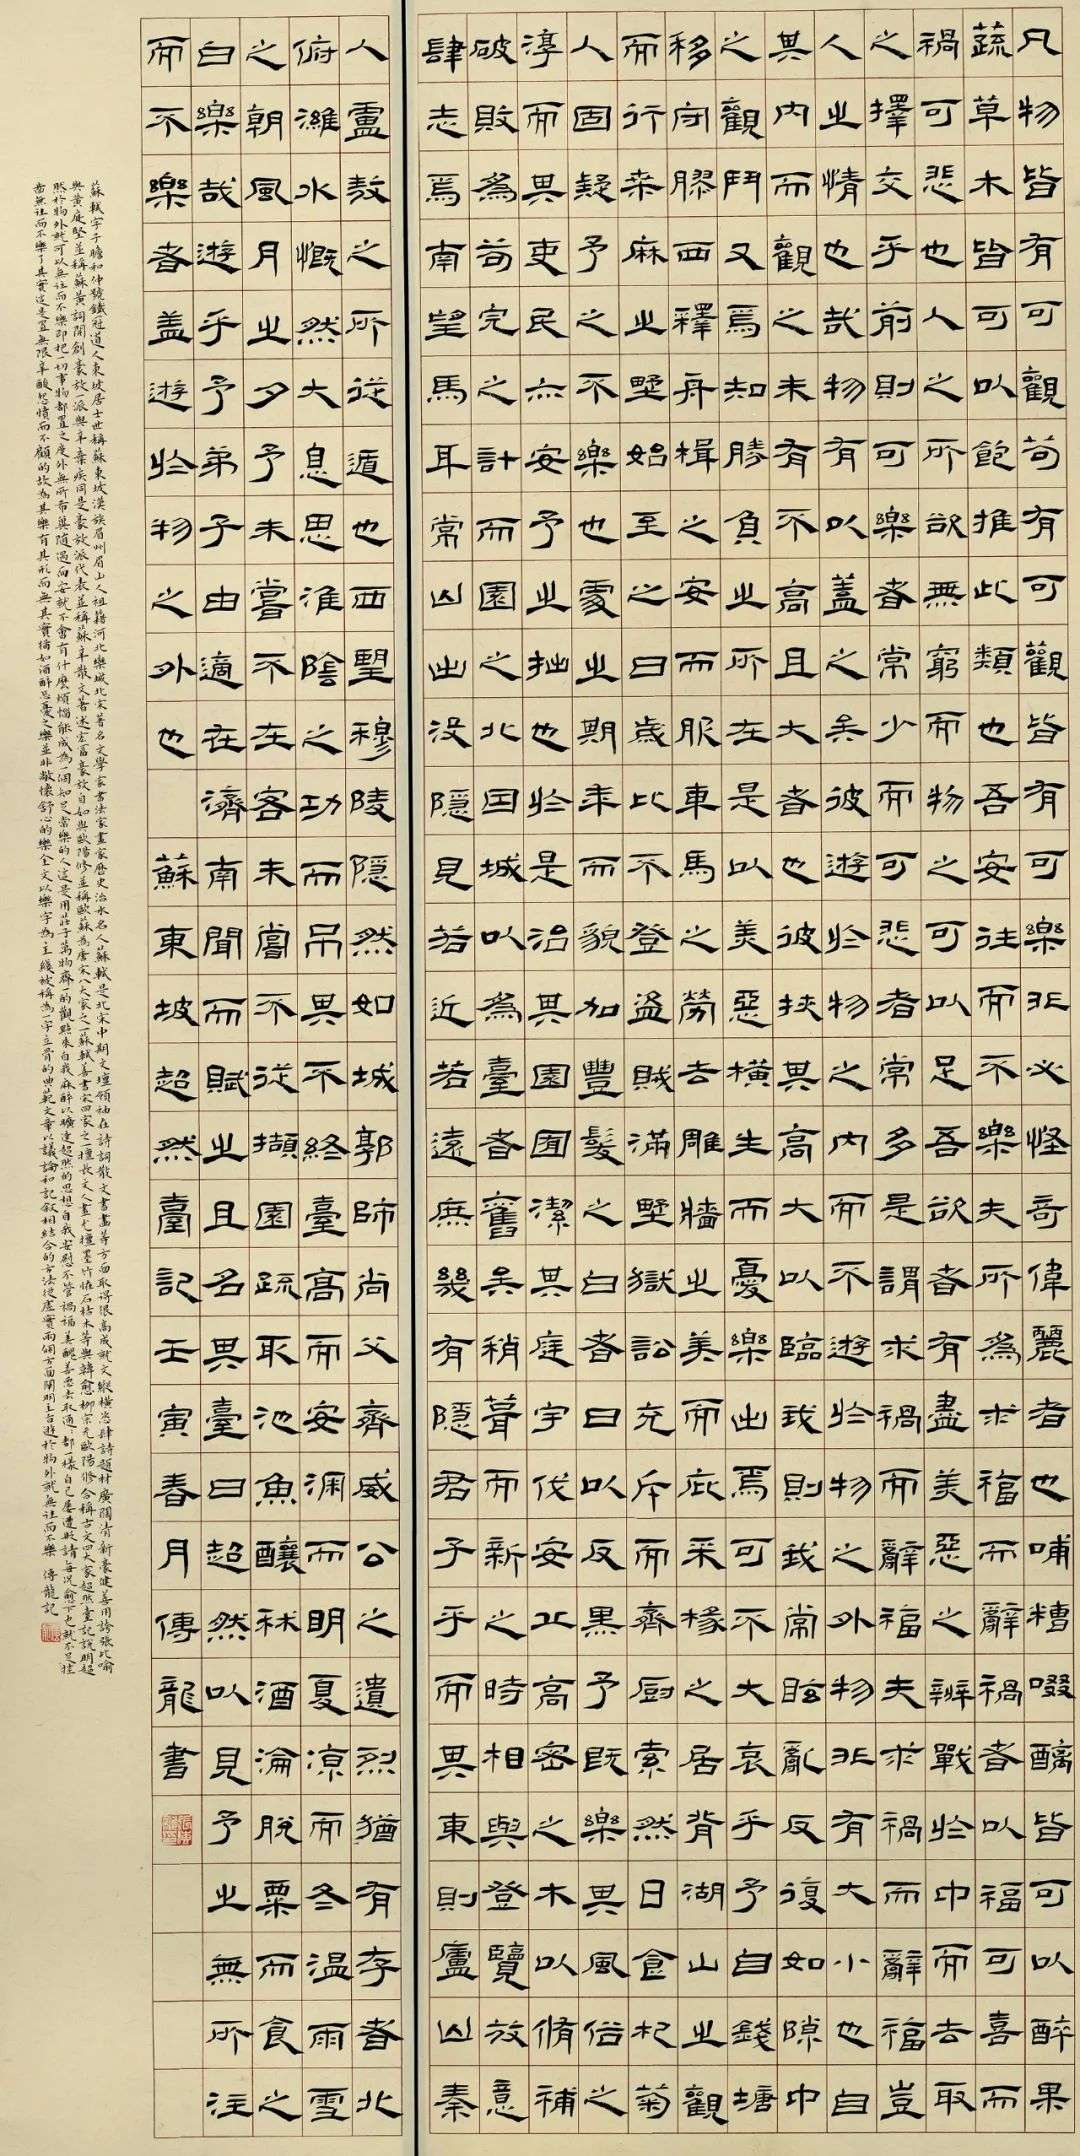 凡物皆有可觀苟有可觀皆有可樂非必怪奇偉麗者也哺糟啜醨皆可以醉果
蔬草木皆可以飽推此類也吾安往而不樂夫所為求福而辭禍者以福可喜而
禍可悲也人之所欲無窮而物之可以足吾欲者有盡美惡之辨戰於中而去取
之擇交乎前則可樂者常少而可悲者常多是謂求禍而辭福夫求禍而辭福豈
人之情也哉物有以蓋之矣彼遊於物之內而不遊於物之外物非有大小也自
其內而觀之未有不高且大者也彼挾其高大以臨我則我常眩亂反復如隙中
之觀鬥又焉知勝負之所在是以美惡橫生而憂樂出焉可不大哀乎予自錢塘
移守膠西釋舟楫之安而服車馬之勞去雕牆之美而庇采椽之居背湖山之觀
而行桑麻之野始至之日歲比不登盜賊滿野獄訟充斥而齋廚索然日食杞菊
人固疑予之不樂也處之期年而貌加豐髮之白者日以反黑予既樂其風俗之
淳而其吏民亦安予之拙也於是治其園囿潔其庭宇伐安丘高密之木以脩補
破敗為苟完之計而園之北因城以為臺者舊矣稍葺而新之時相與登覽放意
肆志焉南望馬耳常山出沒隱見若近若遠庶幾有隱君子乎而其東則廬山秦
人盧敖之所從遁也西望穆陵隱然如城郭師尚父齊威公之遺烈猶有存者北
俯濰水慨然大息思淮陰之功而弔其不終臺高而安深而明夏涼而冬溫雨雪
之朝風月之夕予未嘗不在客未嘗不從擷園疏取池魚釀秫酒瀹脫粟而食之
曰樂哉遊乎予弟子由適在濟南聞而賦之且名其臺曰超然以見予之無所往
而不樂者蓋遊於物之外也 蘇東坡超然臺記壬寅春月傳龍書
蘇軾字子瞻和仲號鐵冠道人東坡居士世稱蘇東坡漢族眉州眉山人祖籍河北欒城北宋著名文學家書法家畫家歷史治水名人蘇軾是北宋中期文壇領袖在詩詞散文書畫等方面取得很高成就文縱橫恣肆詩題材廣闊清新豪健善用誇張比喻
與黃庭堅並稱蘇黃詞開創豪放一派與辛棄疾同是豪放派代表並稱蘇辛散文著述宏富豪放自如與歐陽修並稱歐蘇為唐宋八大家之一蘇軾善書宋四家之一擅長文人畫尤擅墨竹怪石枯木等與韓愈柳宗元歐陽修合稱古文四大家超然臺記說明超
然於物外就可以無往而不樂即把一切事物都置之度外無所希冀隨遇而安就不會有什麼煩惱能成為一個知足常樂的人這是用莊子萬物齊一的觀點來自我麻醉以曠達超然的思想自我安慰不管禍福美醜善惡去取通通都一樣自己屢遭貶謫每況愈下也就不足挂
齒無往而不樂了其實這是置無限辛酸怨憤而不顧的故為其樂有其形而無其實猶如酒醉忘憂之樂並非敞懷舒心的樂全文以樂字為主綫被稱為一字立骨的典範文章以議論和記敘相結合的方法從虛實兩個方面闡明主旨遊於物外就無往而不樂 傳龍記